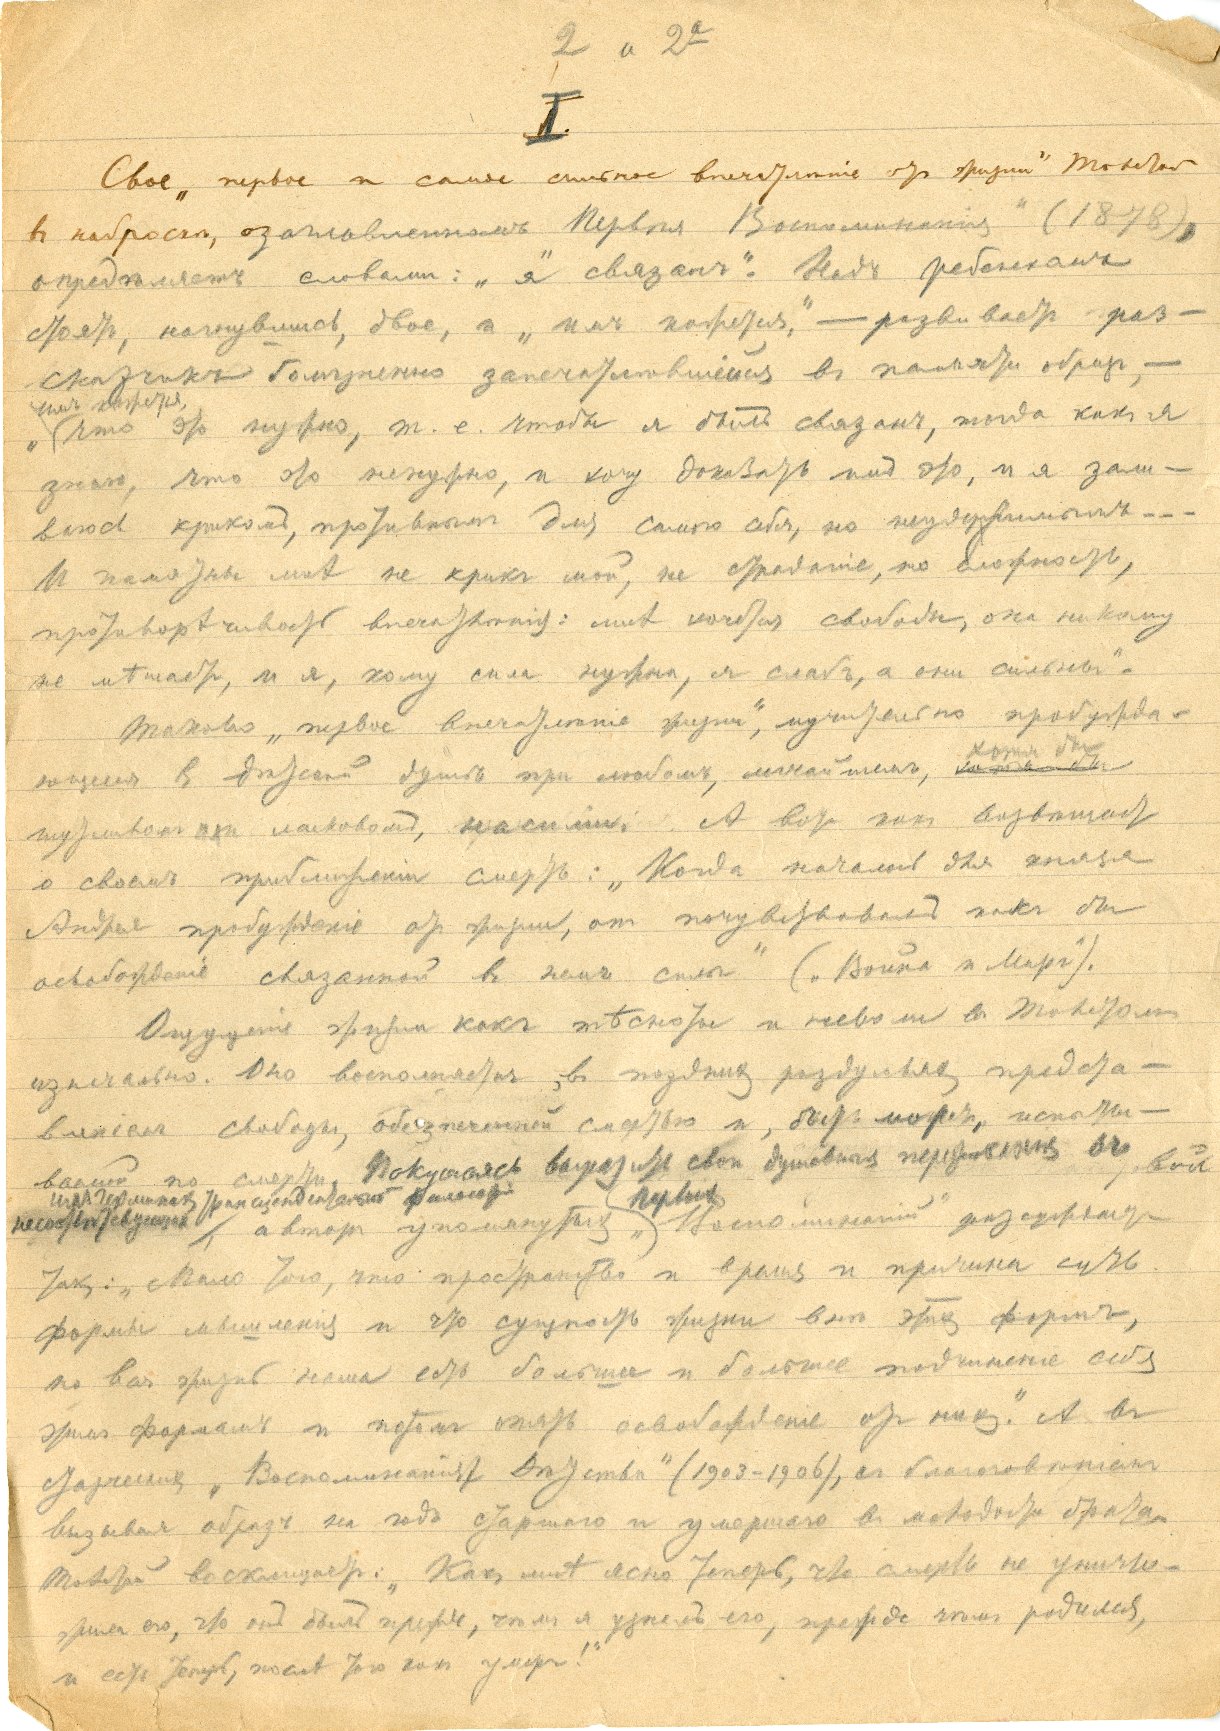 2 и 2а
I.
Свое „первое и самое сильное впечатлѣніе отъ жизни" Толстой
въ наброскѣ, озаглавленномъ „Первыя Воспоминанія" (1878),
опредѣляетъ словами: „я связанъ". Надъ ребенкомъ
стоятъ, нагнувшись, двое, и „имъ кажется," — развиваетъ раз-
сказчикъ болѣзненно запечатлѣвшійся въ памяти образъ, —
имъ кажется,
„что это нужно, т. е. чтобы я былъ связанъ, тогда какъ я
знаю, что это ненужно, и хочу доказать имъ это, и я зали-
ваюсь крикомъ, противнымъ для самого себя, но неудержимымъ...
И памятны мнѣ не крикъ мой, не страданіе, но сложность,
противорѣчивость впечатлѣнія: мнѣ хочется свободы, она никому
не мѣшаетъ, и я, кому сила нужна, я слабъ, а они сильны".
Таково „первое впечатлѣніе жизни", мучительно пробужда-
ющееся въ дѣтской душѣ при любомъ, легчайшемъ, хотя бы
шутливомъ или ласковомъ, насиліи. А вотъ какъ возвѣщаетъ
о своемъ приближеніи смерть: „Когда началось для князя
Андрея пробужденіе отъ жизни, онъ почувствовалъ какъ бы
освобожденіе связанной въ немъ силы" („Война и Миръ").
Ощущеніе жизни какъ тѣсноты и неволи въ Толстомъ
изначально. Оно восполняется въ позднихъ раздумьяхъ предста-
вленіемъ свободы, обезпеченной смертью и, быть можетъ, испыты-
ваемой по смерти. Покушаясь выразить свои душевныя переживанія въ
несоотвѣтствующихъ имъ терминахъ трансцендентальной философіи
, авторъ упомянутыхъ „Первыхъ Воспоминаній" разсуждаетъ
такъ: „Мало того, что пространство и время и причина суть
формы мышленія и что сущность жизни внѣ этихъ формъ,
но вся жизнь наша есть большее и большее подчиненіе себя
этимъ формамъ и потомъ опять освобожденіе отъ нихъ." А въ
старческихъ „Воспоминаніяхъ Дѣтства" (1903-1906), съ благоговѣніемъ
вызывая образъ на годъ старшаго и умершаго въ молодости брата,
Толстой восклицаетъ: „Какъ мнѣ ясно теперь, что смерть не уничто-
жила его, что онъ былъ прежде, чѣмъ я узналъ его, прежде чѣмъ родился,
и есть теперь, послѣ того какъ умеръ!"